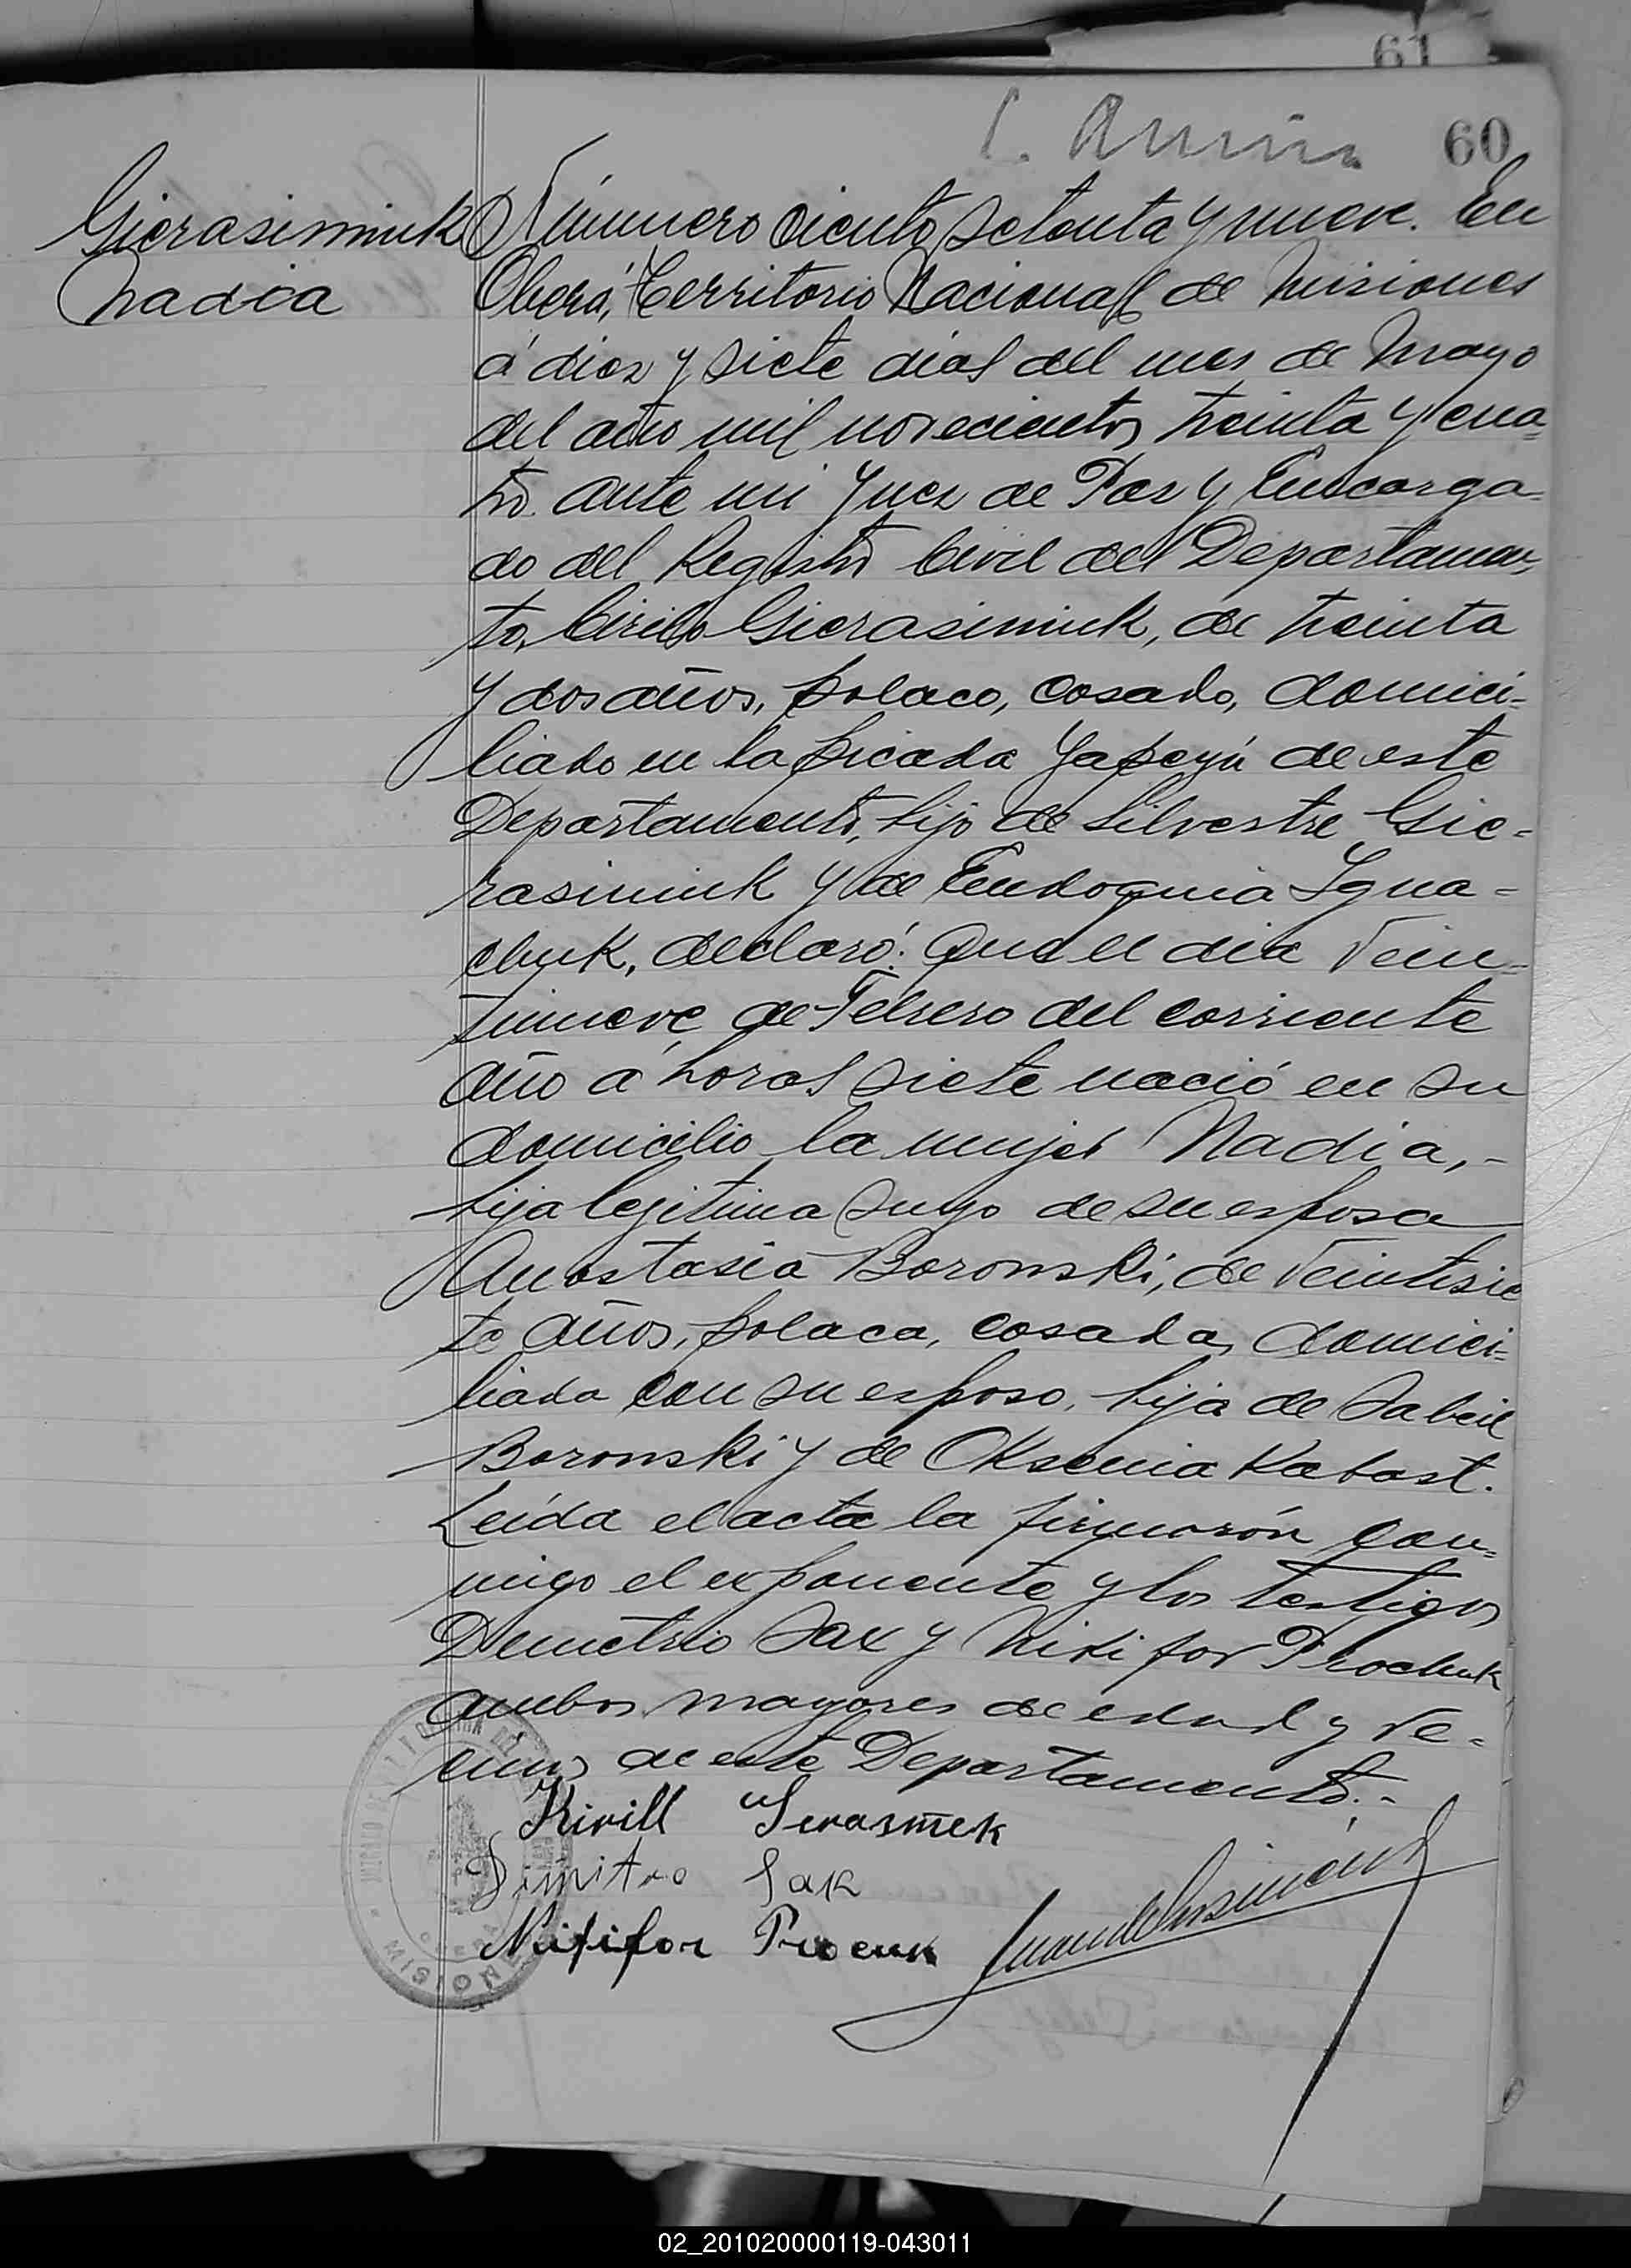 61
60
Gierasimiuk
Nadia
Número ciento setenta y nueve. En
Oberá, Territorio Nacional de Misiones
á diez y siete dias del mes de Mayo
del año mil novecientos treinta y cua=
tro. ante mi Juez de Paz y Encarga=
do del Registro Civil del Departamen=
to, Cirilo Gierasimiuk, de treinta
y dos años, polaco, casado, domici=
liado en la picada Yapeyú de este
Departamento, hijo de Silvestre Gie=
rasimiuk y de Eudoquia Igna=
chuk, declaró: Que el dia vein=
tinueve de Febrero del corriente
año á horas siete nació en su
domicilio la mujer Nadia, -
hija legitima suya de su esposa
Anastasia Boronski, de veintisie
te años, polaca, casada, domici=
liada con su esposo, hija de Sabeil
Boronski y de Oksenia Kabast.
Leída el acta la firmarón con=
migo el exponente y los testigos
Demetrio Sax y Nikifor Prochuk
ambos mayores de edad y ve=
cinos de este Departamento.-
Kirill
Dimitro Sak
Nikifor
MISIONES
02_201020000119-043011